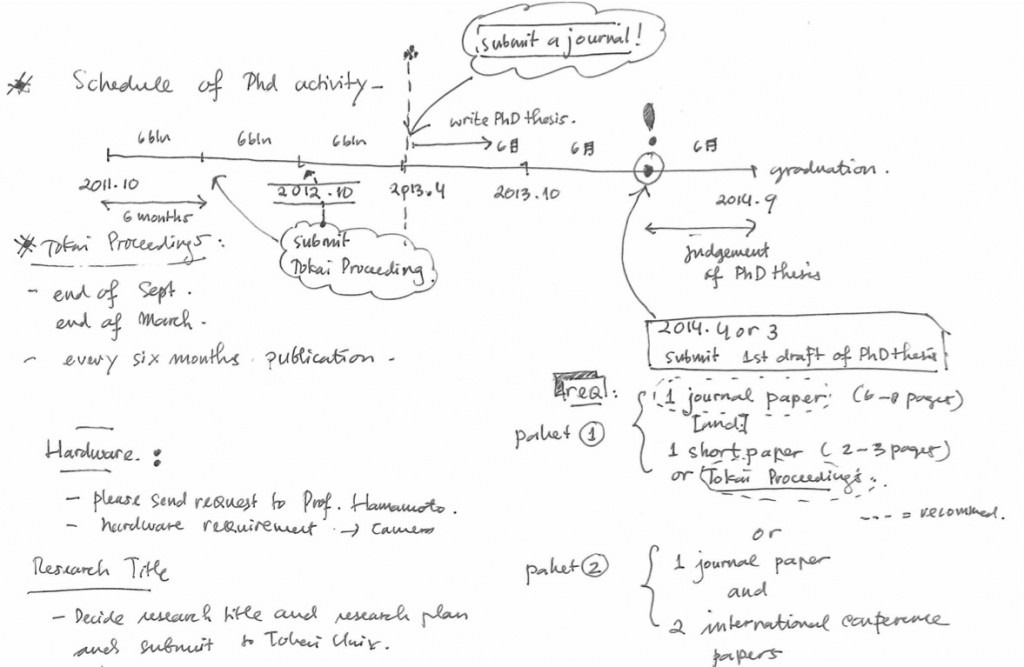 submit a journal!
* Schedule of Phd activity -
write PhD thesis.
6bln 6bln 6bln 6月 6月 6月
graduation.
2011.10 2012.10 2013.4 2013.10 2014.9
6 months
* Tokai Proceedings:
submit
Tokai Proceeding
judgement
of PhD thesis
- end of Sept.
end of March.
- every six months publication -
2014. 4 or 3
submit 1st draft of PhD thesis
req:
paket ①
1 journal paper (6-8 pages)
[and]
1 short paper (2-3 pages)
or Tokai Proceedings.
---- = recommed.
or
paket ②
1 journal paper
and
2 international conference
papers
Hardware :
- please send request to Prof. Hamamoto.
- hardware requirement → camera
Research Title
- Decide research title and research plan
and submit to Tokai Univ.